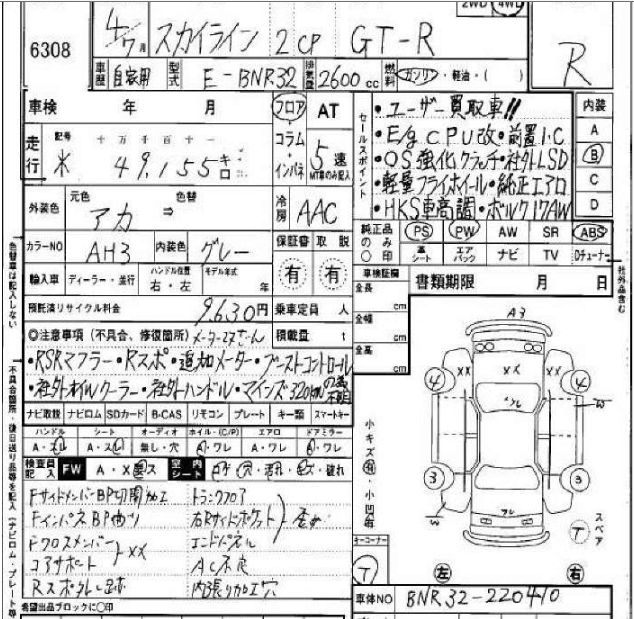 6308
4/7月 スカイライン 2CP GT-R
2WD 4WD
R
車歴 自家用 型式 E-BNR32 排気量 2600cc 燃料 ガソリン・軽油・( )
車検 年 月
フロア コラム・インパネ
AT 5速 MT車のみ記入
セールスポイント
・ユーザー買取車!!
・E/g CPU改・前置I.C
・OS強化クラッチ・社外LSD
・軽量フライホイール・純正エアロ
・HKS車高調・ボルク17AW
内装 A B C D
走行 記号 十万千百十一
* 49,155キロ
外装色 元色 色替
アカ ⇒
冷房 AAC
純正品のみ○印 PS PW AW SR ABS
革シート エアバック ナビ TV Dチューナー
カラーNO AH3 内装色 グレー
保証書 取説
有 有
輸入車 ディーラー・並行 ハンドル位置 右・左 モデル年式 年
車検証欄 書類期限 月 日
全長 cm
全幅 cm
全高 cm
預託済リサイクル料金 9,630円 乗車定員 人
積載量 t
◎注意事項(不具合、修復箇所)
・RSRマフラー・Rスポ・追加メーター・ブーストコントロール
・社外オイルクーラー・社外ハンドル・マインズ320km
ナビ取説 ナビロム SDカード B-CAS リモコン プレート キー類 スマートキー
ハンドル シート オーディオ ホイル・(C/P) エアロ ドアミラー
A・スレ A・スレ 無し・穴 A・ワレ A・ワレ A・ワレ
検査員記入 FW A・X 室内シート
FサイドメンバーBP切開加工 トランクフロア
FインパネBP曲り 右Rサイドポケット
Fクロスメンバー エンドパネル
コアサポート XX AC不良
Rスポ 内張り加工穴
希望出品ブロックに○印
色替車は記入しない
不具合箇所・後日送り品等を記入(ナビロム・プレート等
社外品含む
A3
XX
XX
4
4
3
3
W
W
小キズ有・小凹有
キーコーナー
T
スペア
T
左 右
車体NO BNR32-220410